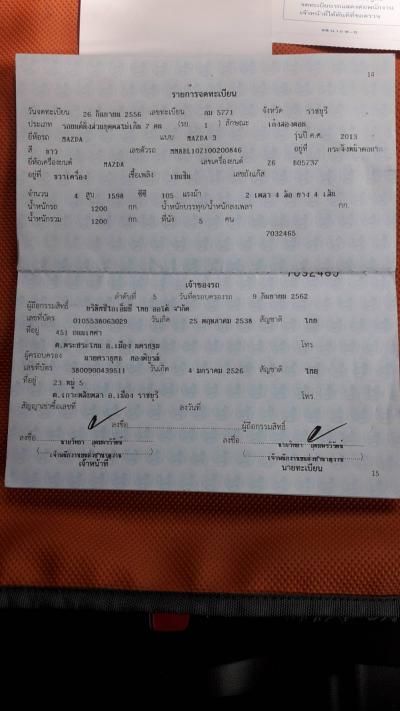 14
รายการจดทะเบียน
วันจดทะเบียน 26 กันยายน 2556 เลขทะเบียน กม 5771 จังหวัด ราชบุรี
ประเภท รถยนต์นั่งส่วนบุคคลไม่เกิน 7 คน (รย. 1 ) ลักษณะ เก๋งสองตอน
ยี่ห้อรถ MAZDA แบบ MAZDA 3 รุ่นปี ค.ศ. 2013
สี ขาว เลขตัวรถ อยู่ที่
ยี่ห้อเครื่องยนต์ MAZDA เลขเครื่องยนต์ 805737
อยู่ที่ ขวาเครื่อง เชื้อเพลิง เบนซิน เลขถังแก๊ส
จำนวน 4 สูบ 1598 ซีซี 105 แรงม้า 2 เพลา 4 ล้อ ยาง 4 เส้น
น้ำหนักรถ 1200 กก. น้ำหนักบรรทุก/น้ำหนักลงเพลา กก.
น้ำหนักรวม 1200 กก. ที่นั่ง 5 คน
7032465
7032465
เจ้าของรถ
ลำดับที่ 5 วันที่ครอบครองรถ 9 กันยายน 2562
ผู้ถือกรรมสิทธิ์ บริษัทซีไอเอ็มบี ไทย ออโต้ จำกัด
เลขที่บัตร 0105538063029 วันเกิด 25 พฤษภาคม 2538 สัญชาติ ไทย
ที่อยู่ 451
ต.พระประโทน อ.เมือง นครปฐม โทร.
ผู้ครอบครอง
เลขที่บัตร 3800900439511 วันเกิด 4 มกราคม 2526 สัญชาติ ไทย
ที่อยู่ 23 หมู่ 5
ต.เกาะพลับพลา อ.เมือง ราชบุรี โทร.
สัญญาเช่าซื้อเลขที่ ลงวันที่
ลงชื่อ ผู้ถือกรรมสิทธิ์
ลงชื่อ ลงชื่อ
เจ้าหน้าที่ นายทะเบียน
15